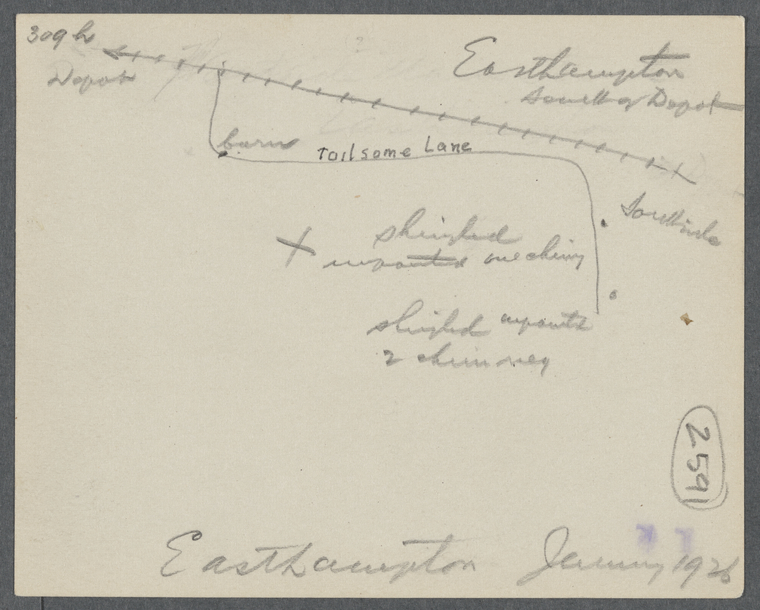 309 h
Depot
Easthampton
South of Depot
barn
Toilsome Lane
Southside
shingled
unpainted one chimy
shingled unpaintd
2 chimney
2591
Easthampton January 1926